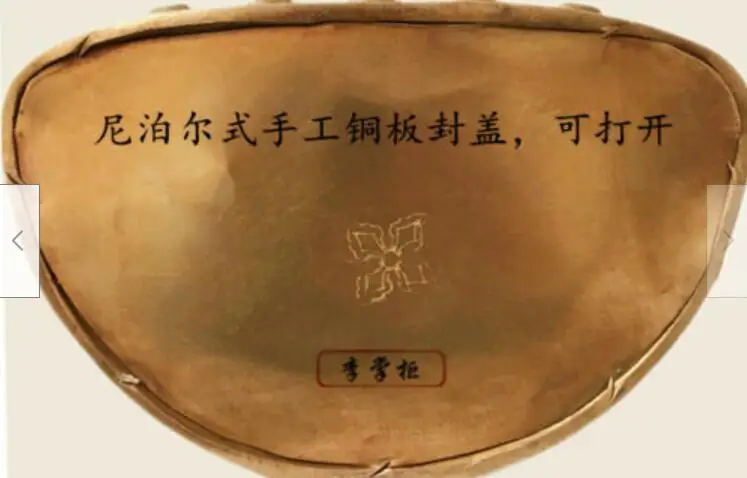 尼泊尔式手工铜板封盖，可打开
李掌柜